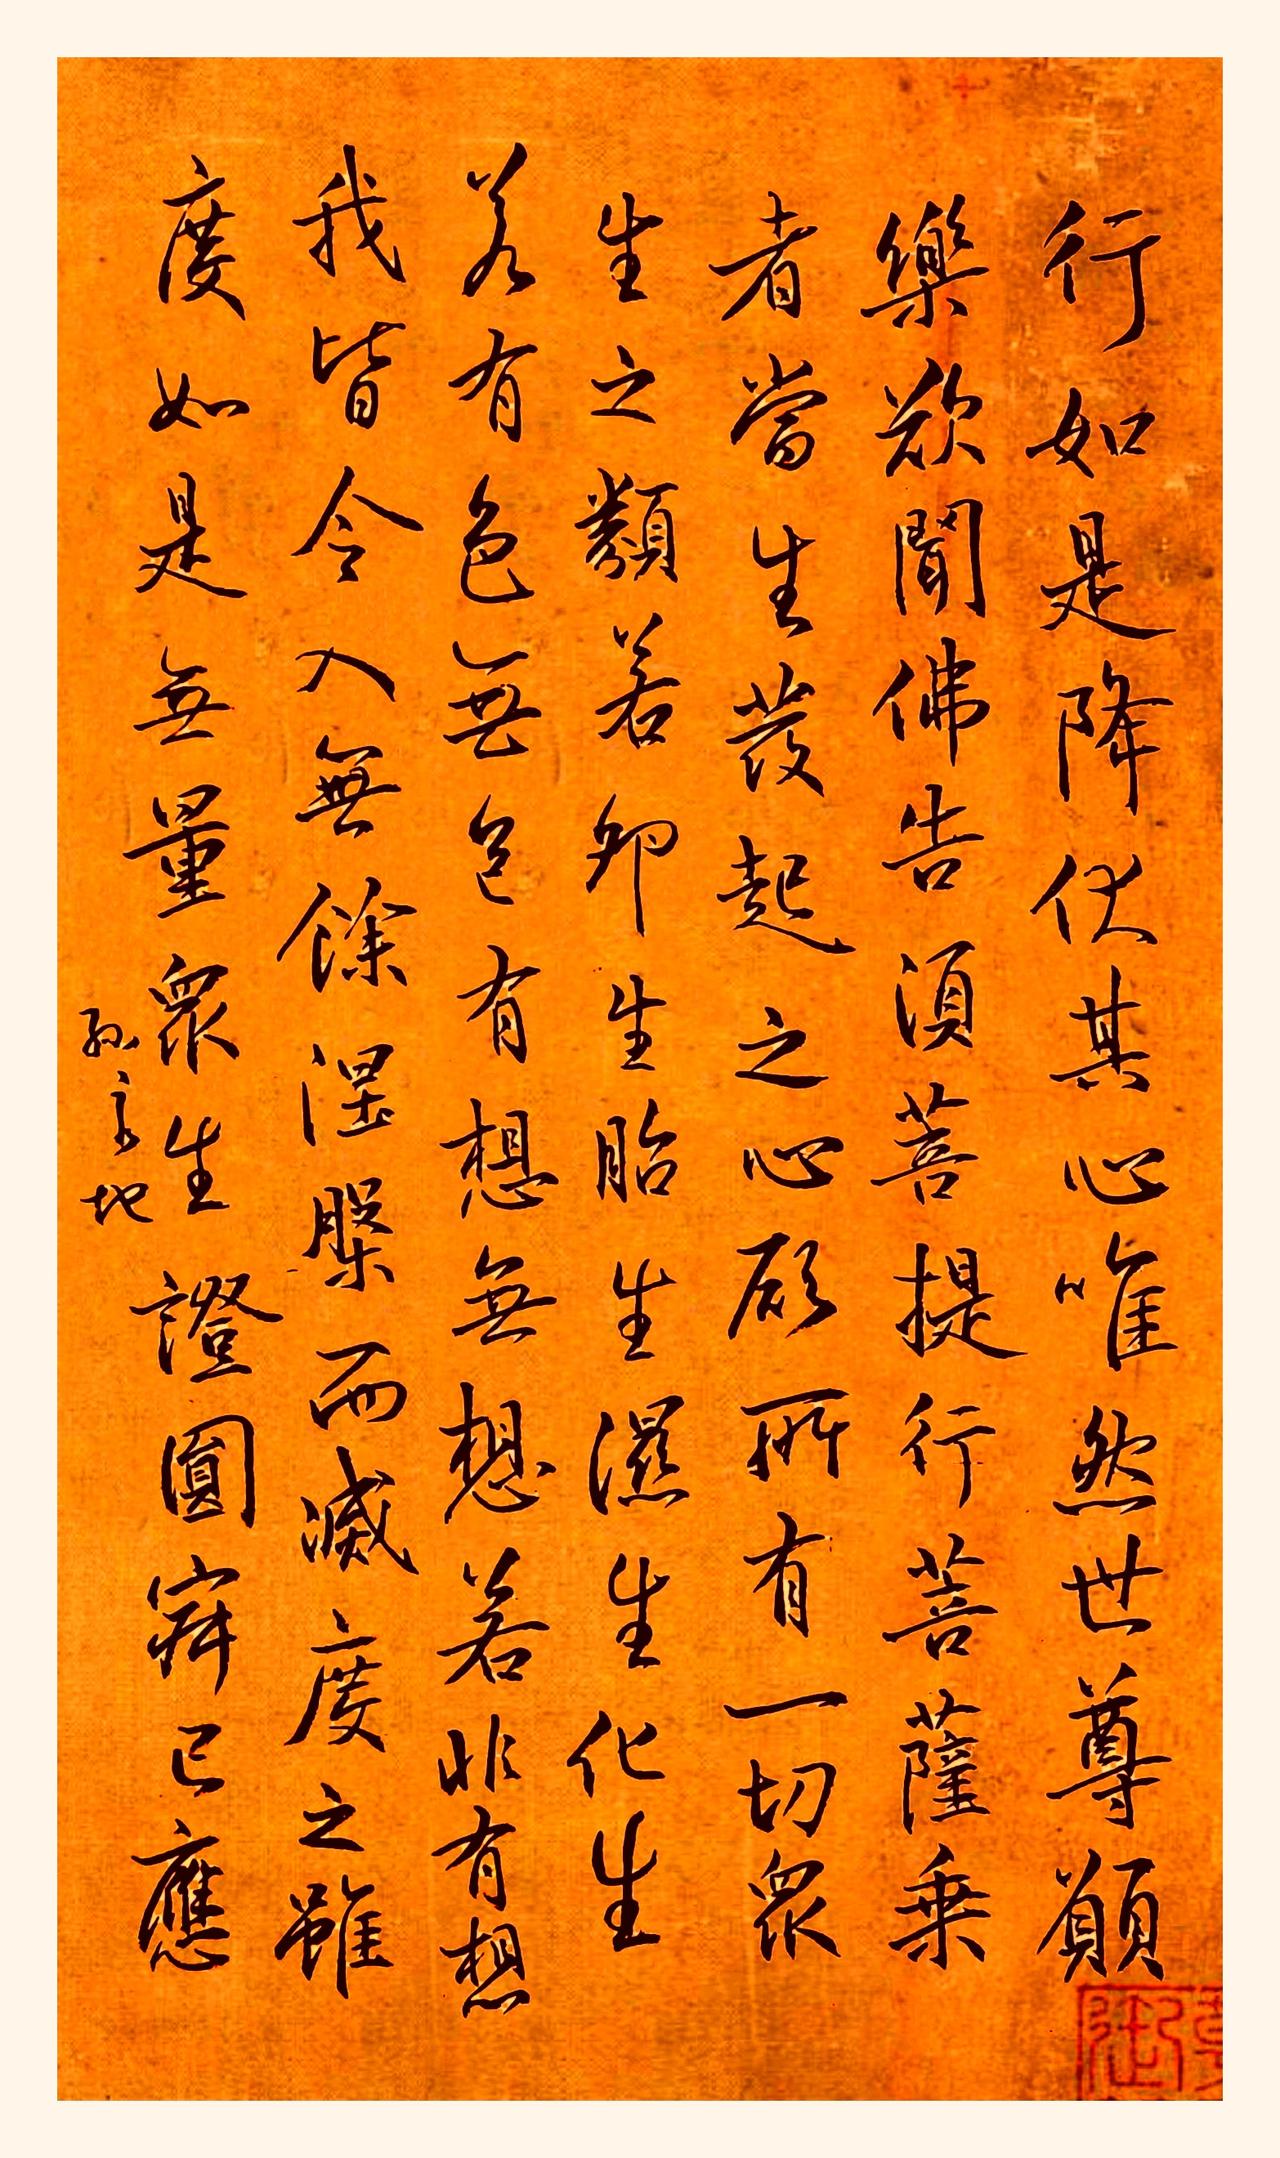 行如是降伏其心唯然世尊願
樂欲聞佛告須菩提行菩薩乗
者當生發起之心願所有一切衆
生之類若卵生胎生生濕生化生
若有色無色有想無想若非有想
我皆令入無餘涅槃而滅度之雖
度如是無量衆生證圓寂已應